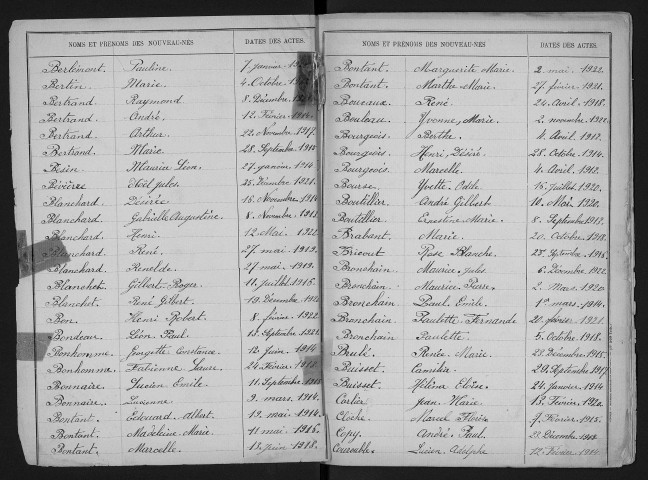 NOMS ET PRÉNOMS DES NOUVEAU-NÉS DATES DES ACTES.
Berlemont Pauline 7 janvier
Bertin Marie 4 Octobre
Bertrand Raymond 8 Décembre
Bertrand André 12 Février
Bertrand Arthur 22 Novembre 1917
Bertrand Marie 28 Septembre 1915
Besin 27 janvier 1914
Noël Jules 25 Décembre 1921
Blanchard Désirée 16 Novembre 1914
Blanchard Gabrielle Augustine 8 Novembre
Blanchard Henri 12 Mai 1922
Blanchard René 27 mai 1919
Blanchard Renelde 27 mai 1919
Blanchet Gilbert Roger 11 Juillet 1916
Blanchet René Gilbert 19 Décembre
Bon Henri Robert 8 février 1922
Bondeau Léon Paul 13 Septembre
Bonhomme Georgette Constance 12 Juin 1914
Bonhomme Fabienne 24 Février
Bonnaire Lucien Emile 11 Septembre
Bonnaire Lucienne 9 mars 1914
Bontant Edouard Albert 19 mai 1914
Bontant Madeleine Marie 11 mai 1916
Bontant Marcelle 13 Juin 1918
NOMS ET PRÉNOMS DES NOUVEAU-NÉS DATES DES ACTES.
Bontant Marguerite Marie 2 mai 1922
Bontant Marthe Marie 27 février 1921
Bouveaux René 24 Avril 1918
Bouleau Yvonne Marie 2 novembre
Bourgeois Berthe 4 Avril
Bourgeois Henri Désiré 28 Octobre 1914
Bourgeois Marcelle 4 Avril
Bourse Yvette Odile 16 Juillet 1920
Boutillier André Gilbert 10 Mai 1920
Boutillier Ernestine Marie 8 Septembre
Brabant Marie 20 Octobre 1918
Bricout Rose Blanche 27 Septembre
Bronchain Maurice Jules 6 Décembre 1922
Bronchain Maurice Pierre 2 Mars 1920
Bronchain Paul Emile 1er mars 1914
Bronchain Paulette Fernande 21 février 1921
Bronchain Paulette 5 Octobre 1918
Brulé Renée Marie 28 Décembre
Buisset Camélia 29 Septembre 1917
Buisset Hélina Eloïse 24 Janvier 1914
Carlier Jean Marie 13 Février
Cloche Marcel 9 Février 1915
Copy André Paul 23 Décembre
Lucien Adolphe 12 Février 1914